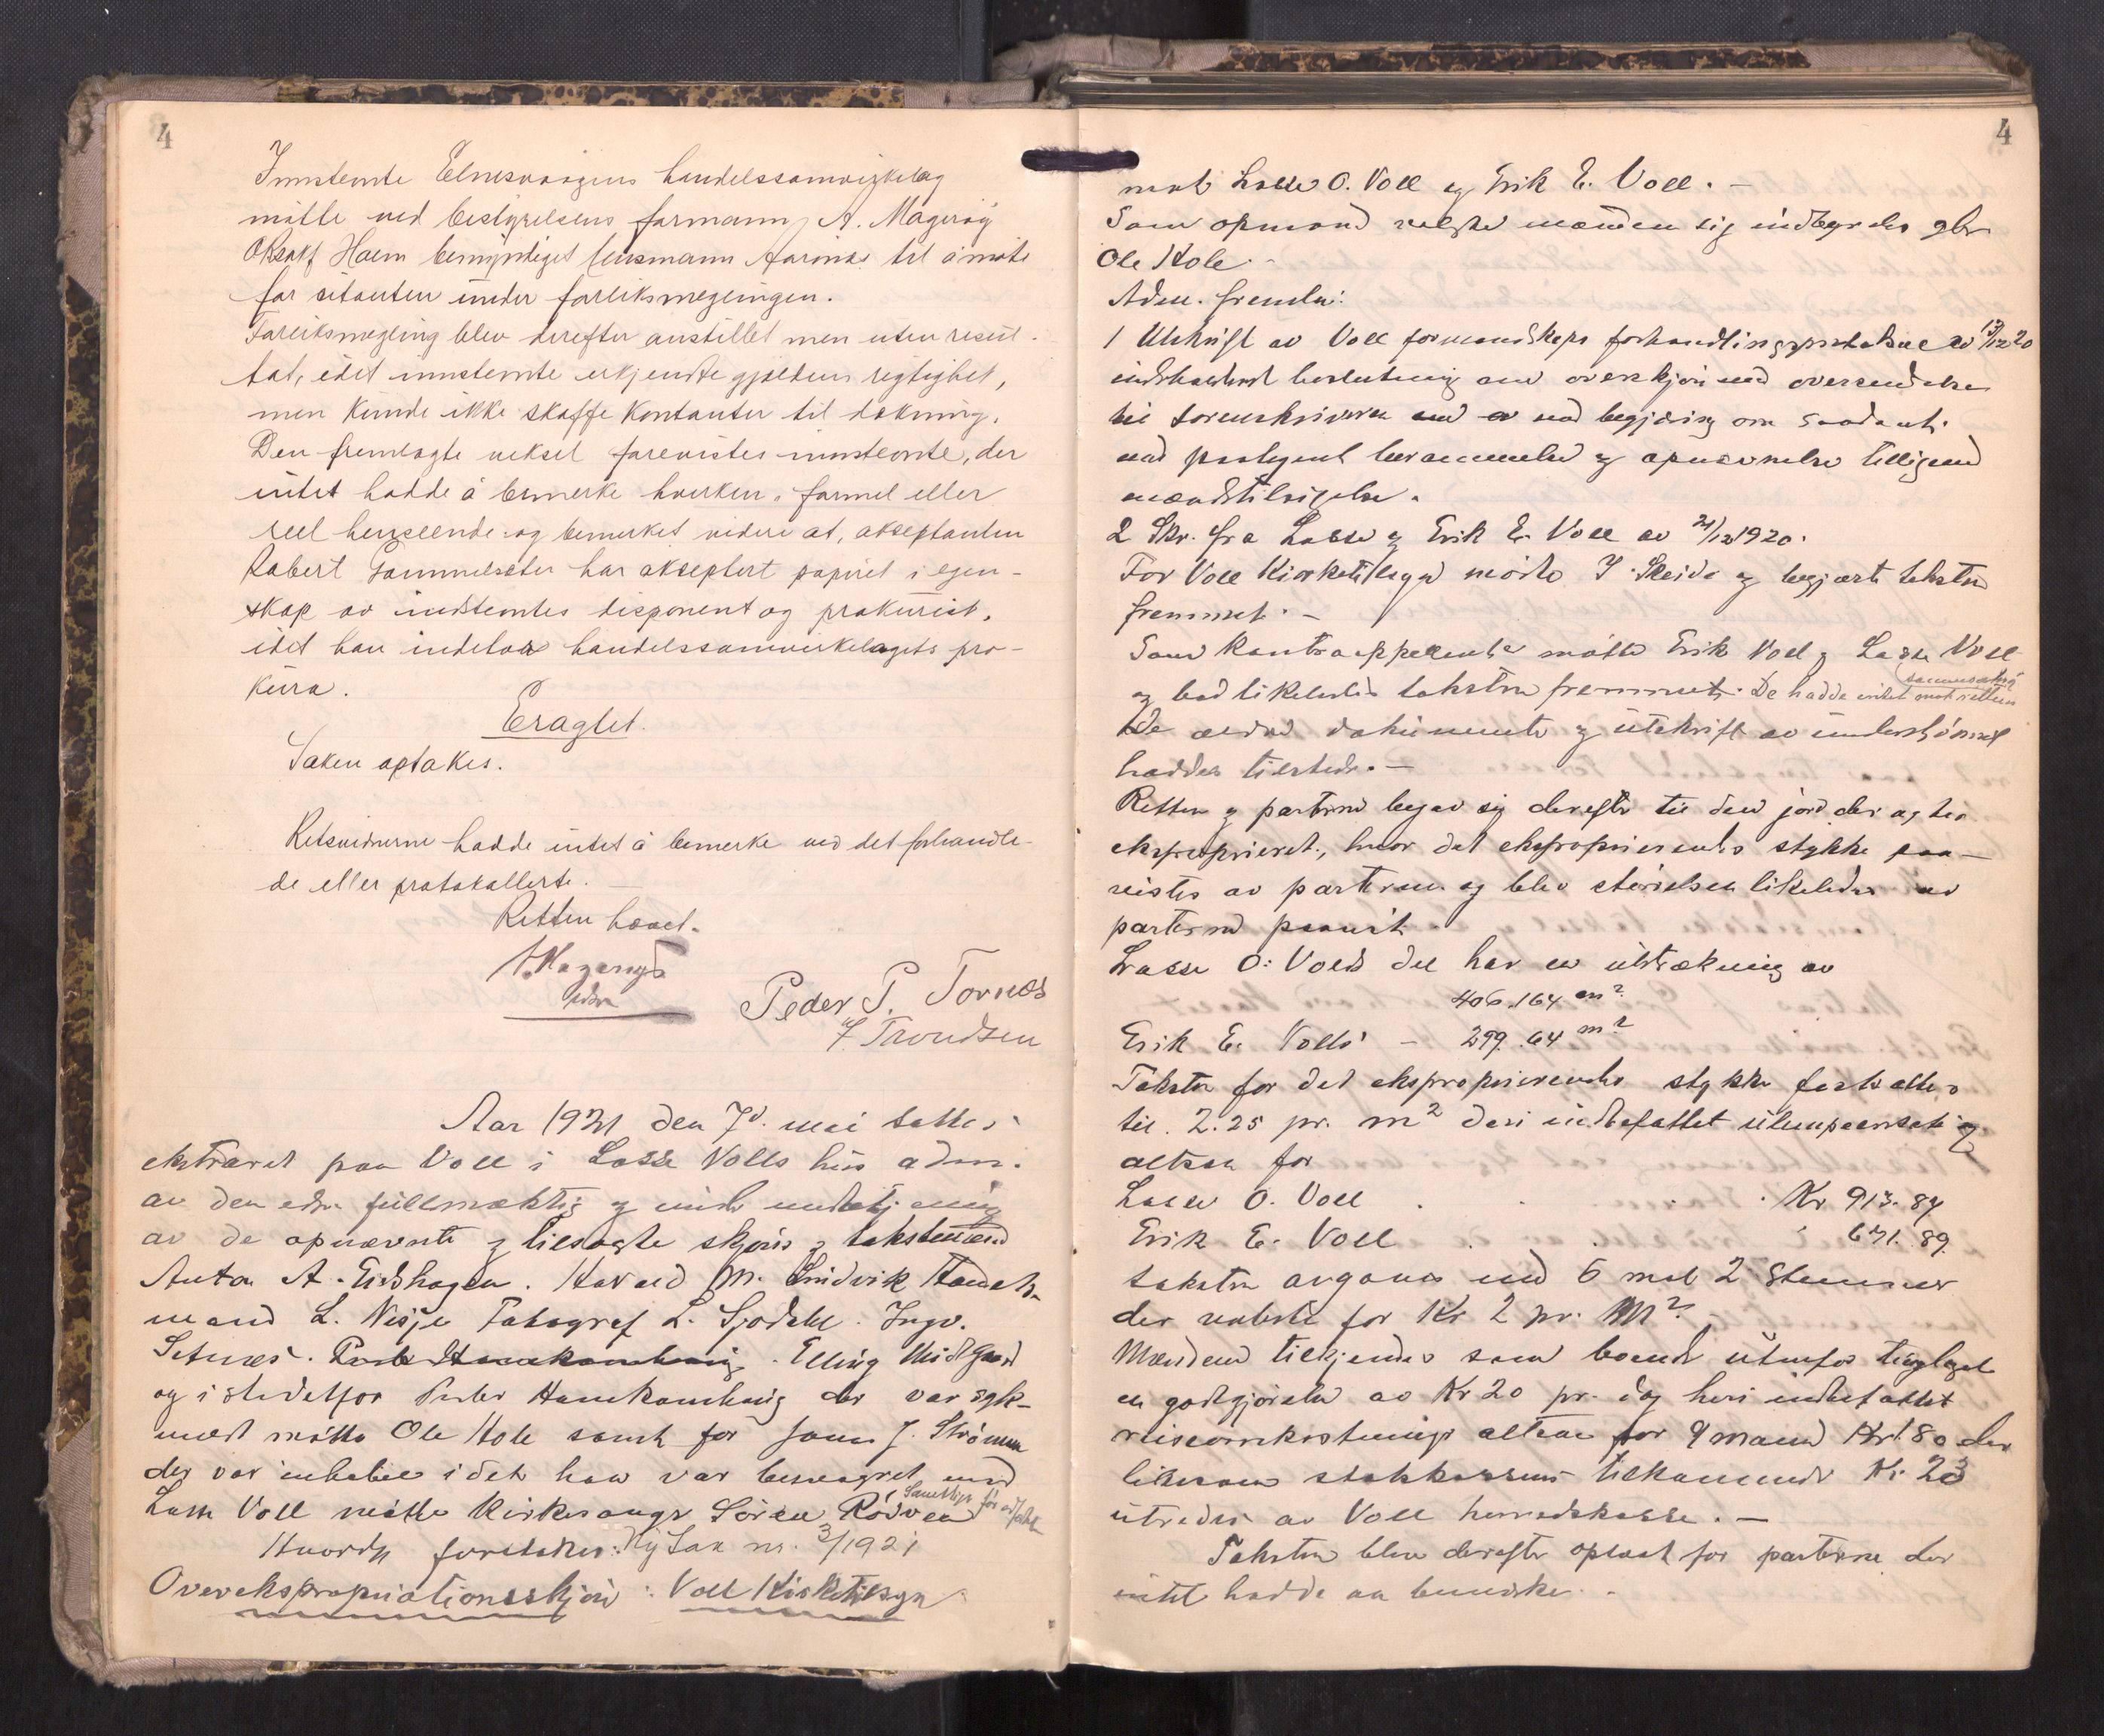 4
Innstemte Elnesvaagens handelssamvirkelag
møtte ved bestyrelsens formann A. Magerøy
O.Rsakf Haem bemyndiget lensmann Aarønæs til å møte
for citanten under forliksmeglingen.
Forliksmegling blev derefter anstillet men uten resul-
tat, idet innstemte erkjendte gjældens rigtighet,
men kunde ikke skaffe kontanter til dækning.
Den fremlagte veksel forevistes innstemte, der
intet hadde å bemerke hverken i formel eller
reel henseende og bemerket videre at, akseptanten
Robert Gammelsæter har akseptert papiret i egen-
skap av indstemtes disponent og prokurist,
idet han indehar handelssamvirkelagets pro-
kura.
Eragtet.
Saken optakes.
Retsvidnerne hadde intet å bemerke ved det forhandle-
de eller protokollerte.
Retten hævet.
Peder P. Tornes
T Trondsen
Aar 1921 den 7d. mai sattes
ekstraret paa Voll i Lasse Volls hus adm.
av den edsv. fuldmæktig og under medbetjening
av de opnævnte og tilsagte skjøns og takstmænd
Anton A. Eidshagen. Harald M. Lindvik Handels-
mand L. Nesje Fotograf L. Sjødahl. Ingv.
Setnes. Peder Hamkambuig. Elling Midtgaard
og istedetfor Peder Hamkambuig der var syk-
meldt møtte Ole Hole samt for Jens J. Strømme
der var inhabil idet han var besvogret med
Lasse Voll møtte kirkesanger Søren Rødven
Hvorda foretokes: Ny Sak nr. 3/1921
Overekspropriationsskjøn: Voll Kirketilsyn
4
mot Lasse O. Voll og Erik E. Voll. —
Som opmand valgte mændene sig indbyrdes gbr
Ole Hole. -
Adm. fremla:
1 Utskrift av Voll formandskaps forhandlingsprotokol av 13/12 20
indeholdende beslutning om overskjøn med oversendelse
til sorenskriveren med begjæring om saadant.
med paategnet berammelse og opnævnelse tilligemed
mændstilsigelse.
2 Skr. fra Lasse og Erik E. Voll av 21/12 1920.
For Voll Kirketilsyn møtte I. Skeide og begjærte taksten
fremmet. —
Som kontraappellenter møtte Erik Voll og Lasse Voll
og bad likeledes taksten fremmet. De hadde intet mot rettens
sammensætning
De ældre dokumenter og utskrift av underskjønnet
haddes tilstede. —
Retten og parterne begav sig derefter til den jord der agtes
ekspropriert, hvor det eksproprierendes stykke paa-
vistes av parterne og blev størrelsen likeledes av
parterne paavist.
Lasse O. Volls del har en utstrækning av
406.164 m²
Erik E. Volls - 299.64 m²
Taksten for det eksproprierendes stykke fastsættes
til 2.25 pr. m² deri indbefattet ulempeserstatning
altsaa for
Lasse O. Voll . . . Kr 913.87
Erik E. Voll . . . 671.89
taksten avgaves med 6 mot 2 stemmer
der voterte for Kr 2 pr. M²
Mændene tilkjendes som boende utenfor tinglaget
en godtgjørelse av Kr 20 pr. dag heri indbefattet
reiseomkostninger altsaa for 9 mand Kr 180 der
likesom statskassens tilkommende Kr. 23
utredes av Voll herredskasse. —
Taksten blev derefter oplæst for parterne der
intet hadde aa bemerke. -